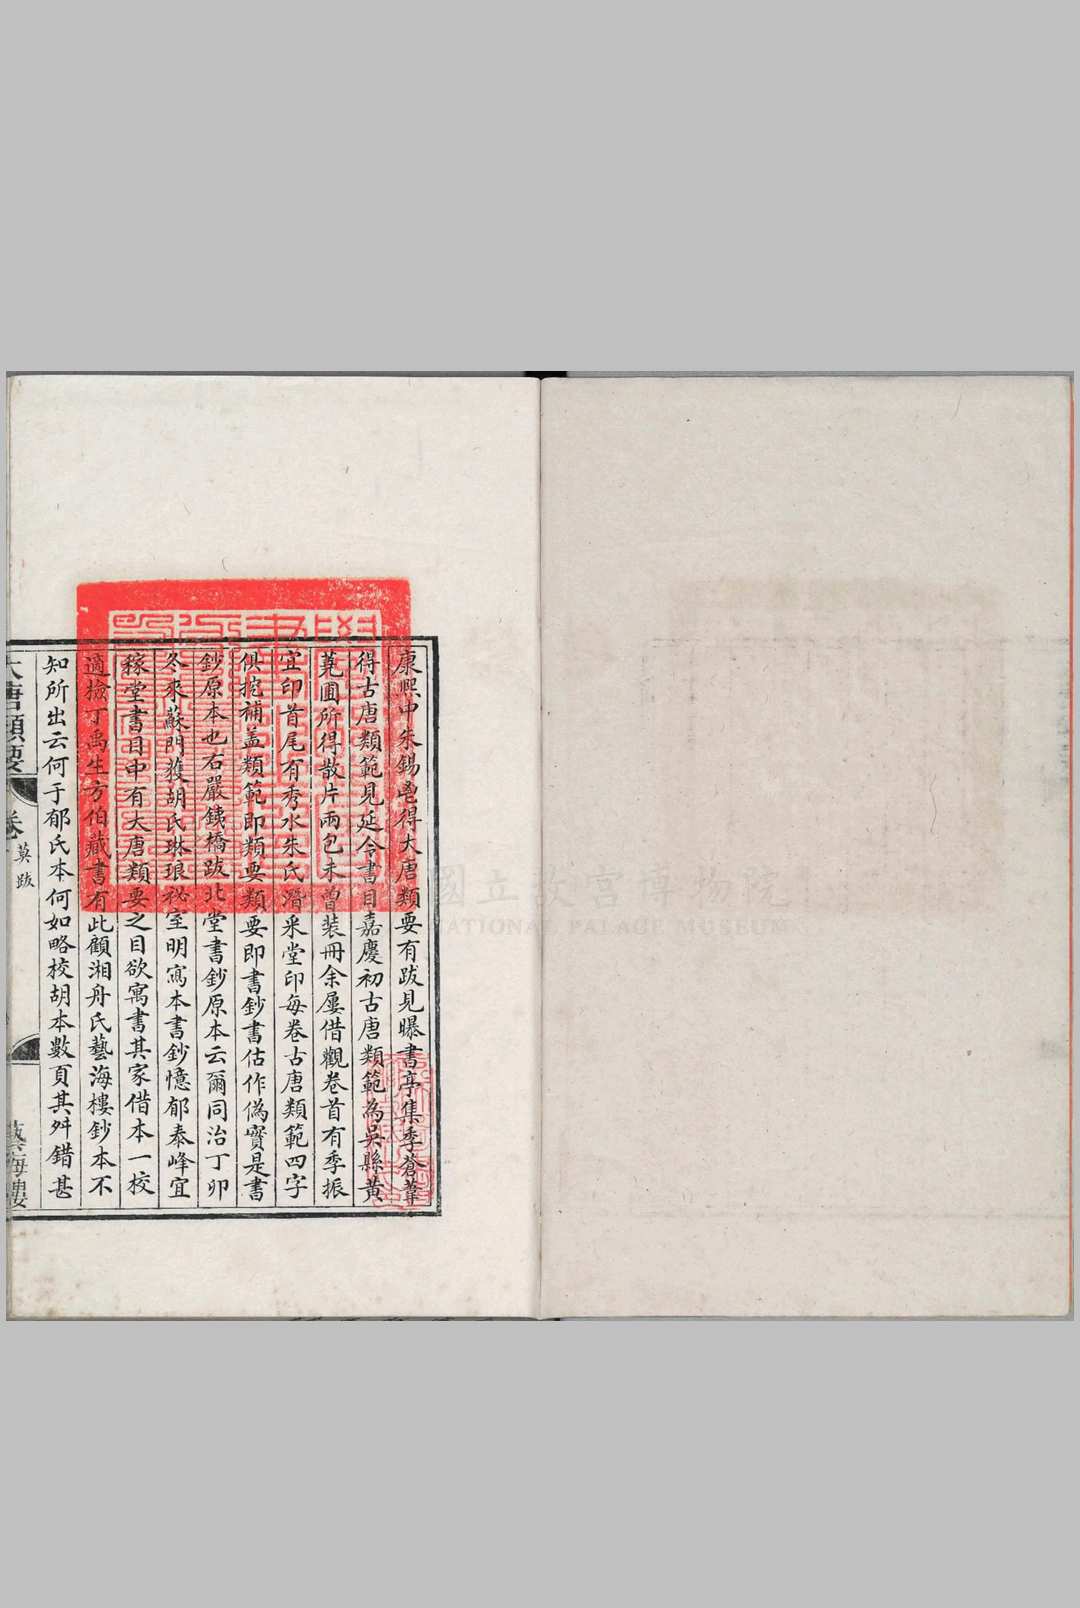 康熙中朱錫鬯得大唐類要有跋見曝書亭集季蒼葦
得古唐類範見延令書目嘉慶初古唐類範為吳縣黃
蕘圃所得散片兩包未曾裝冊余屢借觀卷首有季振
宜印首尾有秀水朱氏潛采堂印每卷古唐類範四字
俱挖補蓋類範即類要類要即書鈔書估作偽實是書
鈔原本也右嚴銕橋跋北堂書鈔原本云爾同治丁卯
冬來蘇門獲胡氏琳琅祕室明寫本書鈔憶郁泰峰宜
稼堂書目中有大唐類要之目欲寓書其家借本一校
適檢丁禹生方伯藏書有此顧湘舟氏藝海樓鈔本不
知所出云何于郁氏本何如略校胡本數頁其舛錯甚
大唐類要
卷
莫跋
藝海樓
國立故宮博物院
NATIONAL PALACE MUSEUM